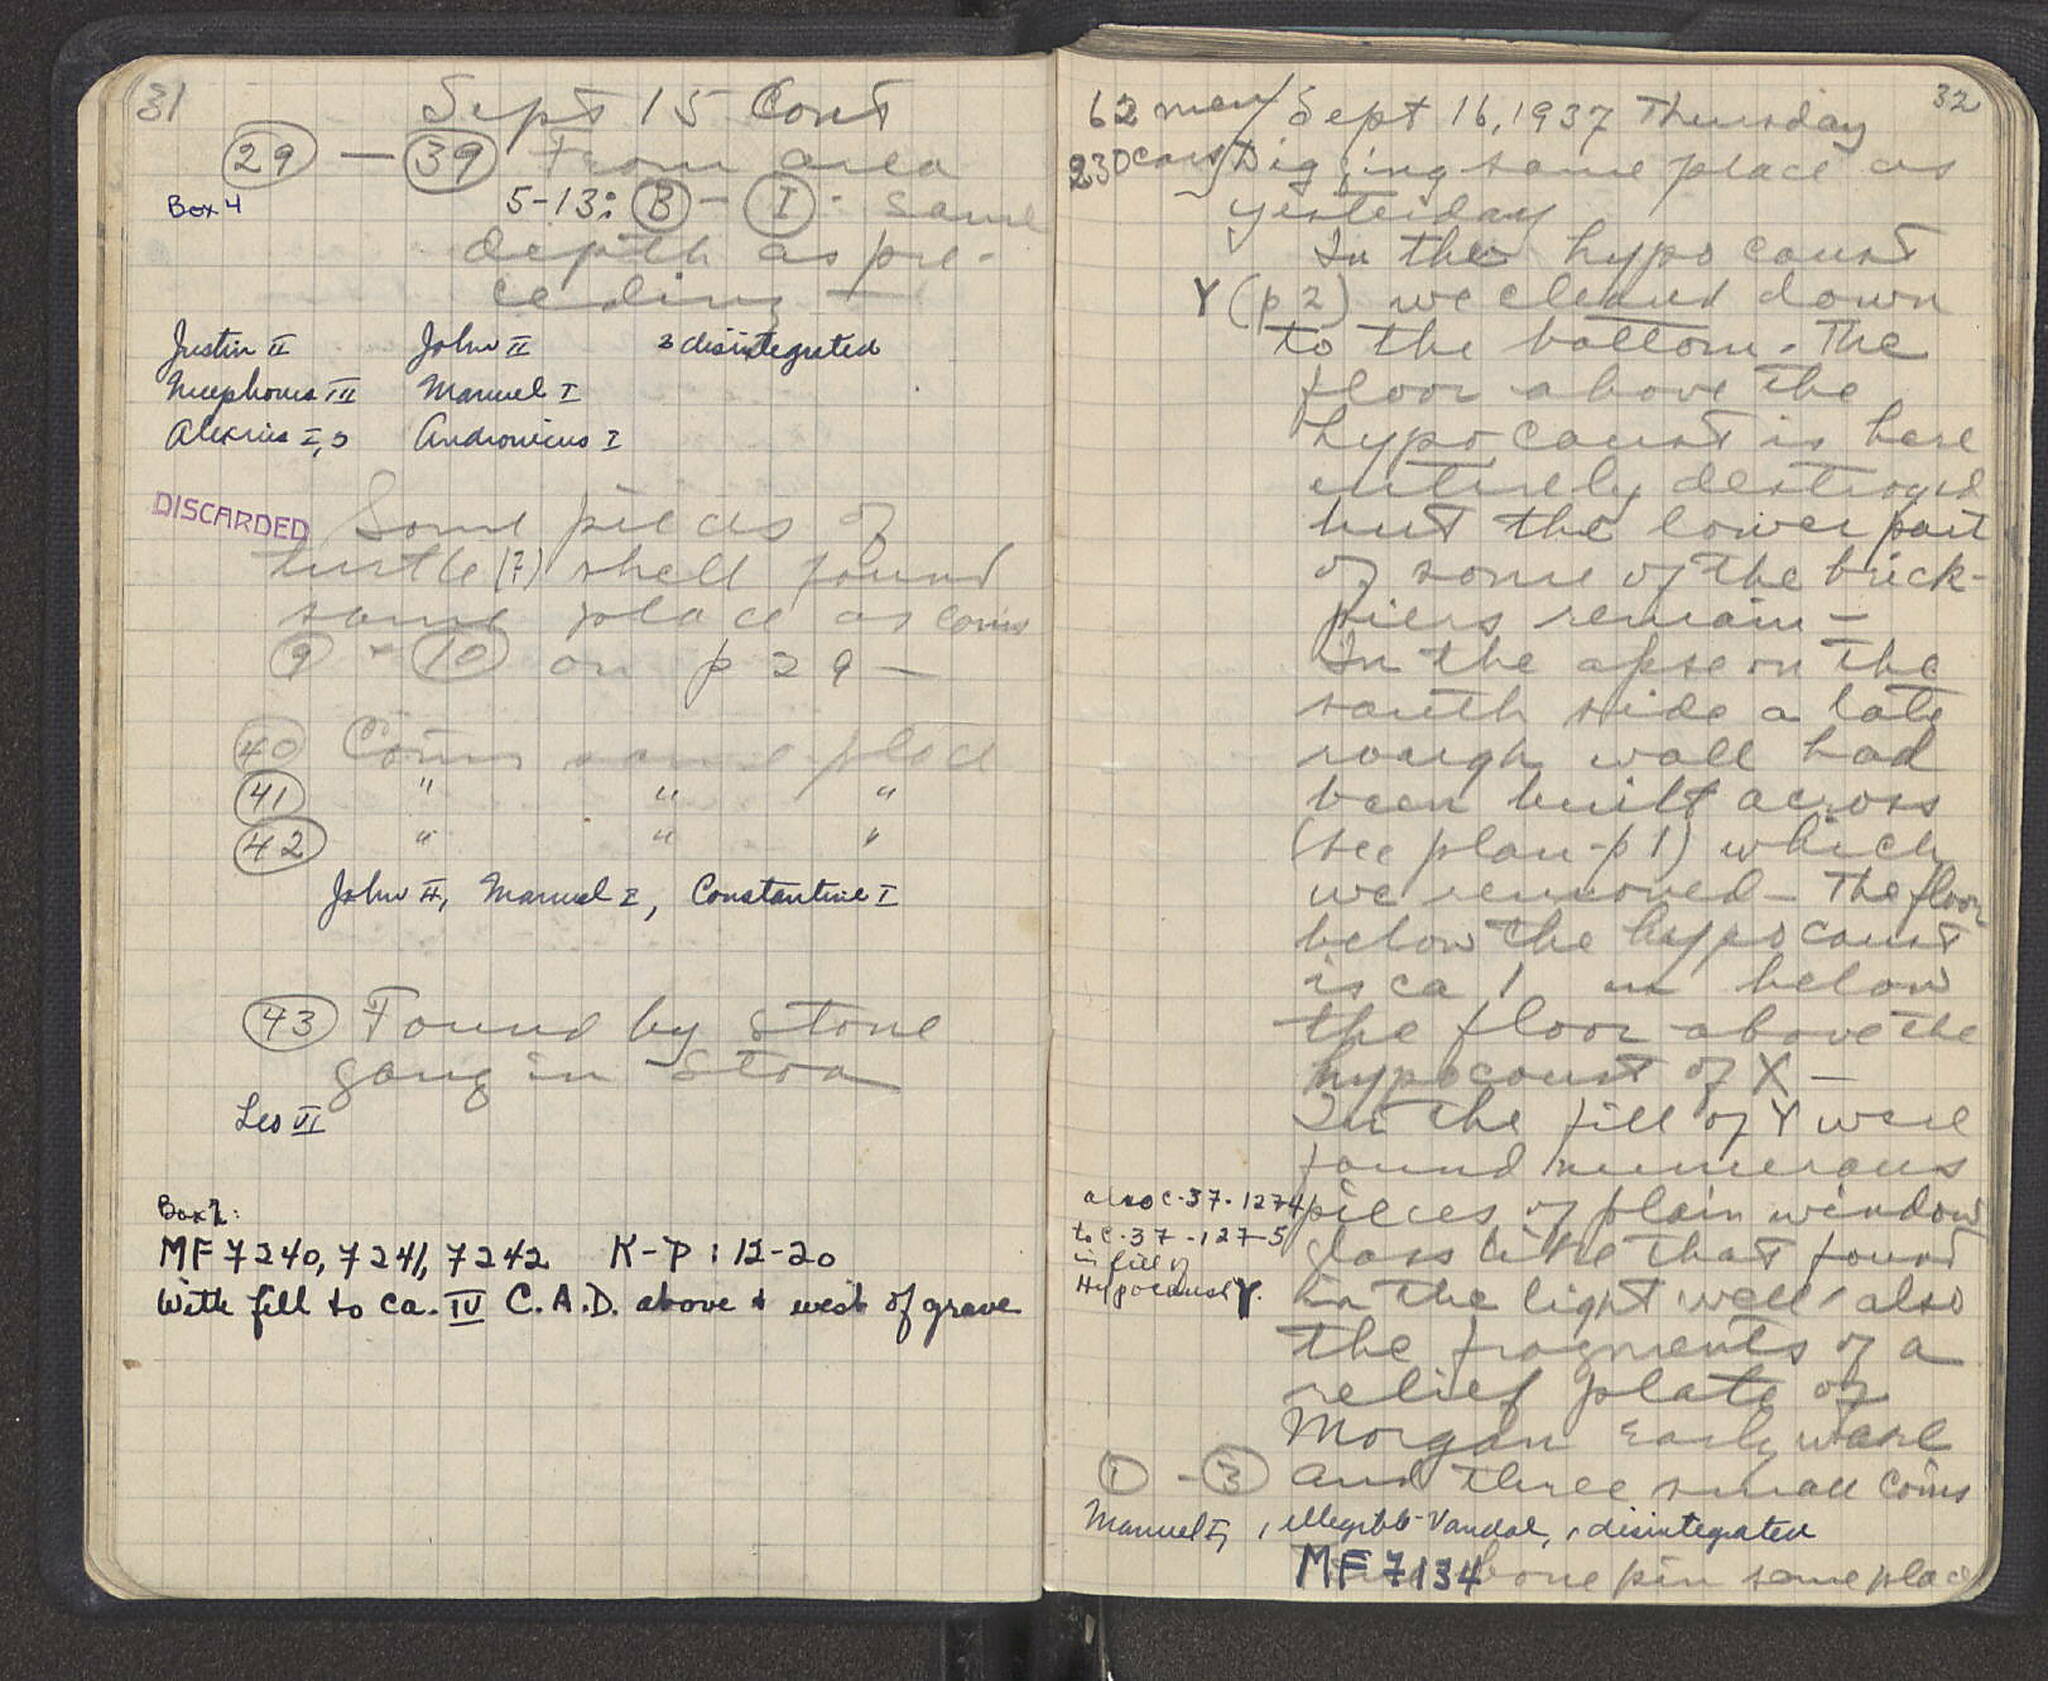 31
Sept 15 Cont
29 — 39 From area
Box 4
5-13: B - I : same
depth as pre-
ceding —
Justin II John II 3 disintegrated
Nicephorus III Manuel I
Alexius I, 3 Andronicus I
DISCARDED
Some pieces of
turtle (?) shell found
same place as coins
9 + 10 on p 29 —
40 Coins same place
41 " " "
42 " " "
John II, Manuel I, Constantine I
43 Found by stone
gang in Stoa
Leo VI
Box 2:
MF 7240, 7241, 7242 K-P : 12-20
With fill to ca. IV C. A.D. above + west of grave
32
62 men / Sept 16, 1937 Thursday
230 cars Digging same place as
yesterday
In the hypocaust
Y (p 2) we cleaned down
to the bottom. The
floor above the
hypocaust is here
entirely destroyed
but the lower part
of some of the brick-
piers remain —
In the apse on the
south side a late
rough wall had
been built across
(see plan - p 1) which
we removed — The floor
below the hypocaust
is ca 1 m below
the floor above the
hypocaust of X —
In the fill of Y were
found numerous
also C-37-1274 pieces of plain window
to C-37-1275 glass like that found
in fill of
Hypocaust Y.
in the light well, also
the fragments of a
relief plate of
Morgan Early ware
1 - 3 and three small coins
Manuel I, 1 illegible Vandal, 1 disintegrated
MF 7134 bone pin same place